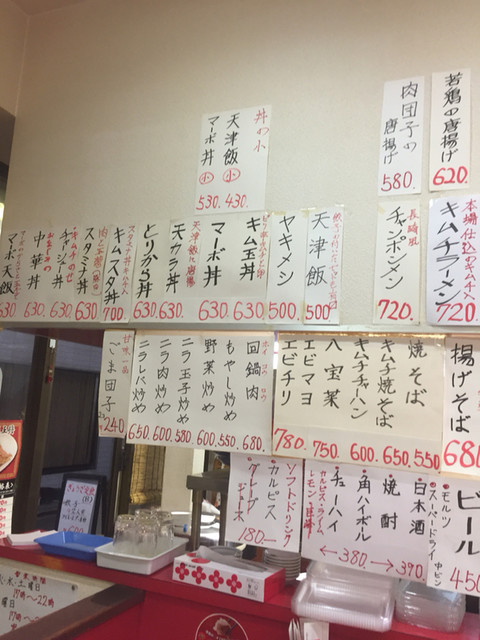 若鶏の唐揚げ
620.
肉団子の
唐揚げ
580.
丼の小
天津飯 小
マーボ丼 小
530. 430.
本場仕込のキムチ入
キムチラーメン
720.
長崎風
チャンポンメン
720.
天津飯
500
ヤキメシ
500.
キム玉丼
630.
マーボ丼
630
天津飯に唐揚
天カラ丼
とりから丼
630.
キムスタ丼
700.
スタミナ丼
630
チャシュー丼
630.
中華丼
630.
マーボ天飯
630
揚げそば
680
焼そば
キムチ焼そば
キムチチャーハン
八宝菜
エビマヨ
エビチリ
780. 750. 600 650. 550
ホイ コウ ロウ
回鍋肉
もやし炒め
野菜炒め
ニラ玉子炒め
ニラ肉炒め
ニラレバ炒め
650. 600 580. 600 550. 680.
甘味一品
ごま団子
240
ビール
・モルツ
・スーパードライ
中ビン
450
・日本酒
・焼酎
・角ハイボール
・チューハイ
←380. →390.
ソフトドリンク
カルピス
オレンジ
ジュース
180
ぎょうざ定食
営業時間